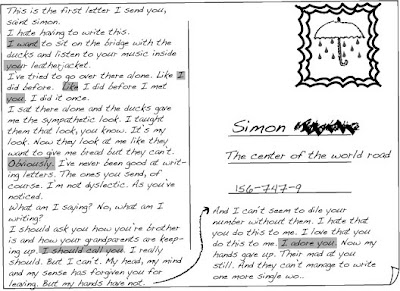 This is the first letter I send you,
saint simon.
I hate having to write this.
I want to sit on the bridge with the
ducks and listen to your music inside
your leatherjacket.
I've tried to go over there alone. Like I
did before. Like I did before I met
you. I did it once.
I sat there alone and the ducks gave
me the sympathetic look. I taught
them that look, you know. It's my
look. Now they look at me like they
want to give me bread but they can't.
Obviously. I've never been good at writ-
ing letters. The ones you send, of
course. I'm not dyslectic. As you've
noticed.
What am I saying? No, what am I
writing?
I should ask you how you're brother
is and how your grandparents are keep-
ing up. I should call you. I really
should. But I can't. My head, my mind
and my sense has forgiven you for
leaving. But my hands have not.
Simon
The center of the world road
156-747-9
And I can't seem to dile your
number without them. I hate that
you do this to me. I love that you
do this to me. I adore you. Now my
hands gave up. Their mad at you
still. And they can't manage to write
one more single wo...